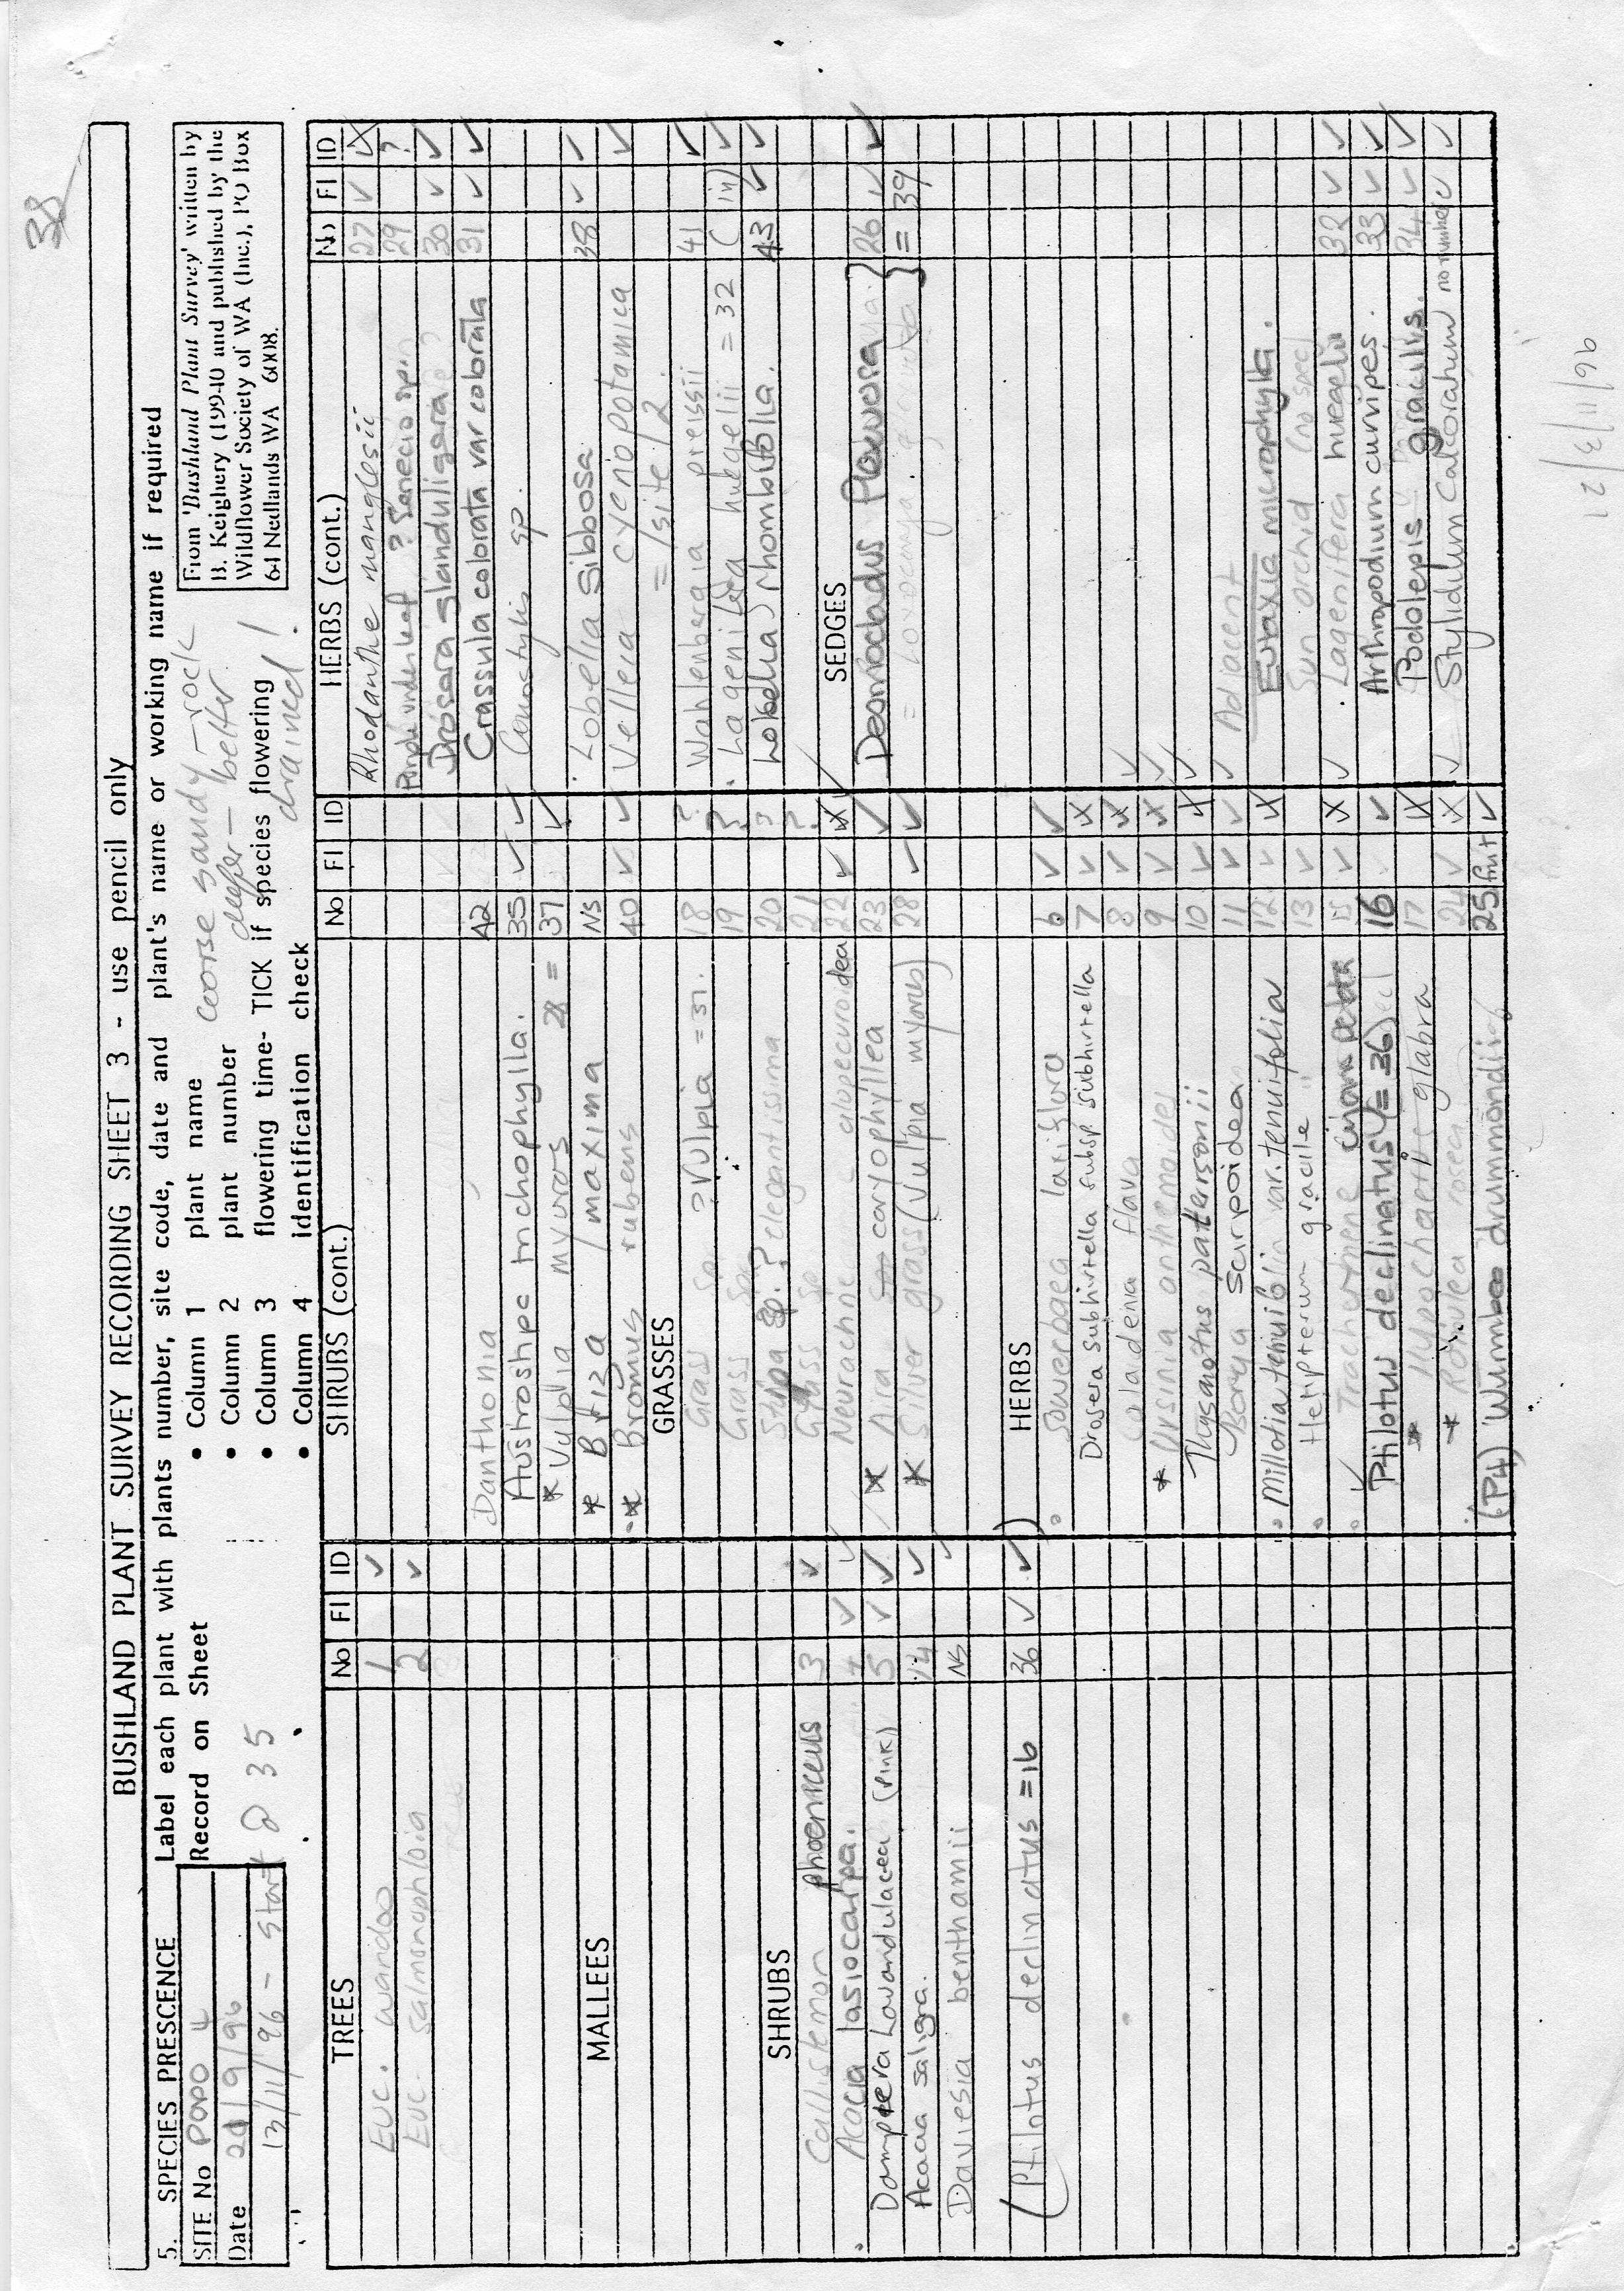 38
BUSHLAND PLANT SURVEY RECORDING SHEET 3 - use pencil only
5. SPECIES PRESCENCE
Label each plant with plants number, site code, date and plant's name or working name if required
Record on Sheet
SITE No POPO 4
Date 20/9/96
13/11/96 - start @ 35
• Column 1 plant name
• Column 2 plant number
• Column 3 flowering time- TICK if species flowering
• Column 4 identification check
coorse sandy - rock
deeper - better
drained!
From 'Bushland Plant Survey' written by
B. Keighery (1994) and published by the
Wildflower Society of WA (Inc.), PO Box
64 Nedlands WA 6008.
TREES No Fl ID
Euc. wandoo 1 ✓
Euc. salmonophloia 2 ✓
MALLEES
SHRUBS
Callistemon phoeniceus 3 ✓
Acacia lasiocarpa. 4 ✓
Dampiera Lavandulacea (Pink) 5 ✓ ✓
Acacia saligna. 14 ✓
Daviesia benthamii NS
(Ptilotus declinatus = 16 36 ✓ ✓)
SHRUBS (cont.) No Fl ID
Danthonia
42
Austrostipa trichophylla. 35 ✓ ✓
* Vulpia myuros 28 = 37 ✓
* Briza maxima NS
* Bromus rubens 40 ✓ ✓
GRASSES
Grass sp. = Vulpia = 37. 18 ?
Grass sp. 19 ?
Stipa sp. ? elegantissima 20 ?
Grass sp 21 ?
Neurachne alopecuroidea 22 ✓ X
* Aira caryophyllea 23 ✓
* Silver grass (Vulpia myuros) 28 ✓ ✓
HERBS
Sowerbaea laxiflora 6 ✓ ✓
Drosera subhirtella subsp. subhirtella 7 ✓ X
Caladenia flava 8 ✓ X
* Ursinia anthemoides 9 ✓ X
Thysanotus patersonii 10 ✓ X
Borya scirpoidea 11 ✓ ✓
Millotia tenuifolia var. tenuifolia 12 ✓ X
Helipterum gracile 13 ✓
Trachymene cyanopetala 15 ✓ X
Ptilotus declinatus (= 36) 16 ✓
* Hypochaeris glabra 17 X
* Romulea rosea 24 ✓ X
(P4) Wurmbea drummondii 25 fruit ✓
HERBS (cont.) No Fl ID
Rhodanthe manglesii 27 ✓ X
Purple under leaf ? Senecio sp. 29 ?
Drosera glanduligera 30 ✓ ✓
Crassula colorata var colorata 31 ✓ ✓
Conostylis sp.
Lobelia gibbosa 38 ✓ ✓
Velleia cycnopotamica ✓
= 1 site / 2
Wahlenbergia preissii 41 ✓
Lagenifera huegelii = 32 ✓
Lobelia rhombifolia. 43 ✓ ✓
SEDGES
Desmocladus flexuosa 26 ✓ ✓
= Loxocarya = 39
Adjacent
Eutaxia microphylla.
Sun orchid (no spec)
Lagenifera huegelii 32 ✓ ✓
Arthropodium curvipes. 33 ✓ ✓
Podolepis gracilis. 34 ✓ ✓
Stylidium calcaratum no number ✓ ✓
21/3/11/96